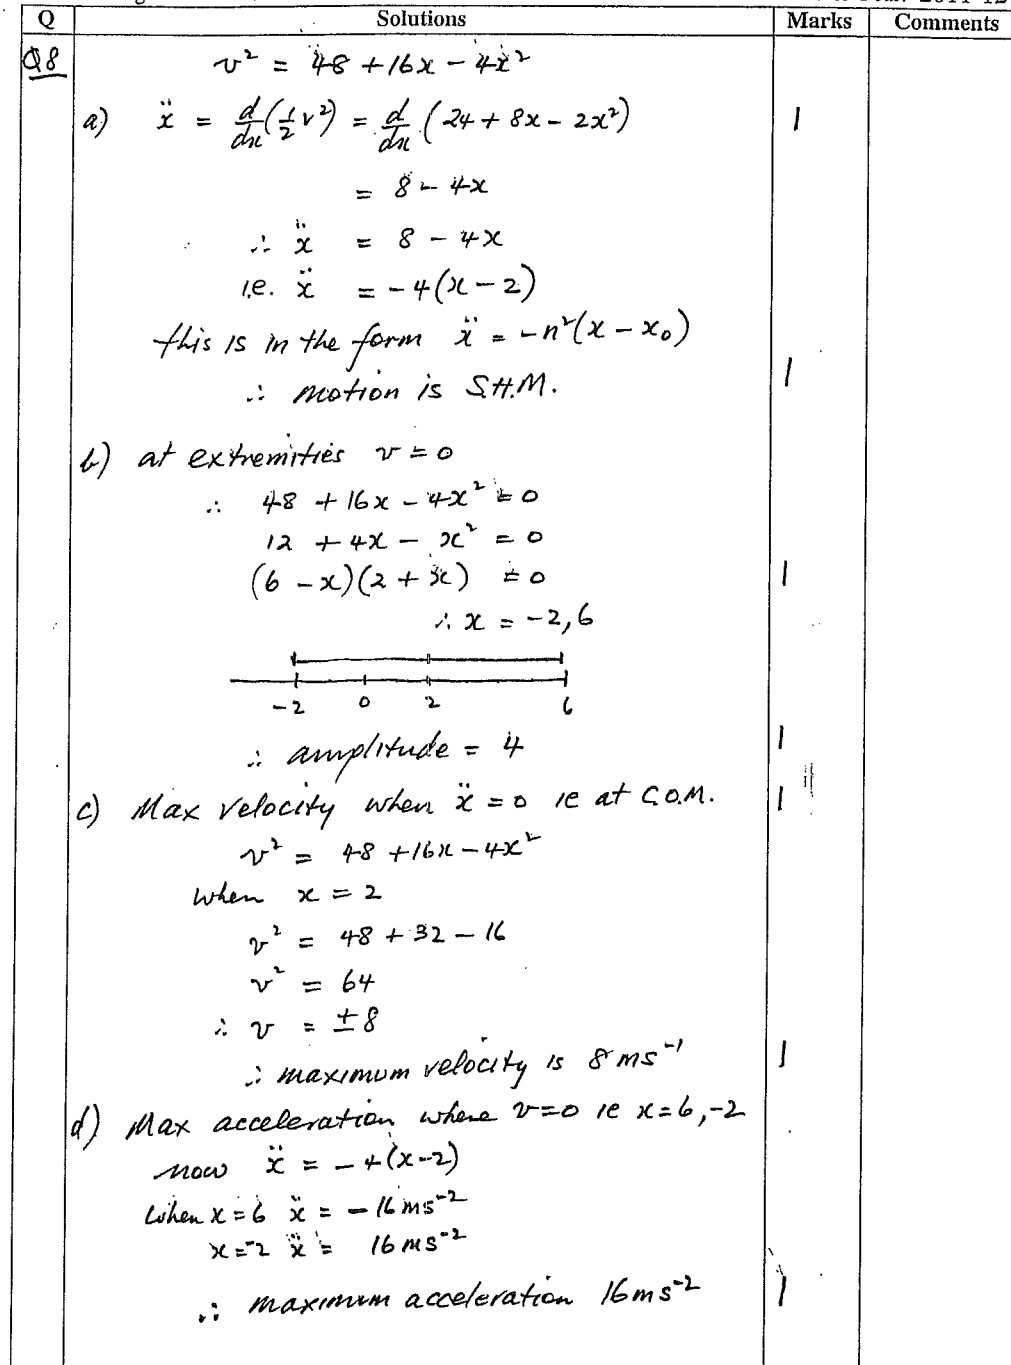 Q Solutions Marks Comments
Q8 v² = 48 + 16x - 4x²
a) ẍ = d/dx (½ v²) = d/dx (24 + 8x - 2x²) 1
= 8 - 4x
∴ ẍ = 8 - 4x
i.e. ẍ = -4(x - 2)
this is in the form ẍ = -n²(x - x₀)
∴ motion is S.H.M. 1
b) at extremities v = 0
∴ 48 + 16x - 4x² = 0
12 + 4x - x² = 0
(6 - x)(2 + x) = 0 1
∴ x = -2, 6
-2 0 2 6
∴ amplitude = 4 1
c) Max velocity when ẍ = 0 ie at C.O.M. 1
v² = 48 + 16x - 4x²
when x = 2
v² = 48 + 32 - 16
v² = 64
∴ v = ±8
∴ maximum velocity is 8 ms⁻¹ 1
d) Max acceleration where v=0 ie x=6,-2
now ẍ = -4(x-2)
when x = 6 ẍ = -16 ms⁻²
x = -2 ẍ = 16 ms⁻²
∴ maximum acceleration 16 ms⁻² 1